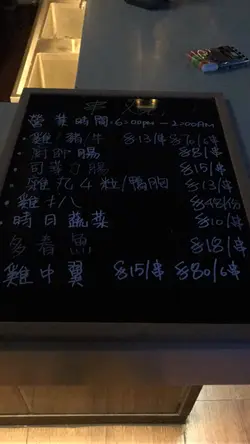 串燒
營業時間:6:00pm－2:00AM
雞/豬/牛 $13/串 $70/6串
廚師腸 $8/串
司華力腸 $15/串
雞丸4粒/鴨胸 $13/串
雞扒 $48/份
時日蔬菜 $10/串
多春魚 $18/串
雞中翼 $15/串 $80/6串